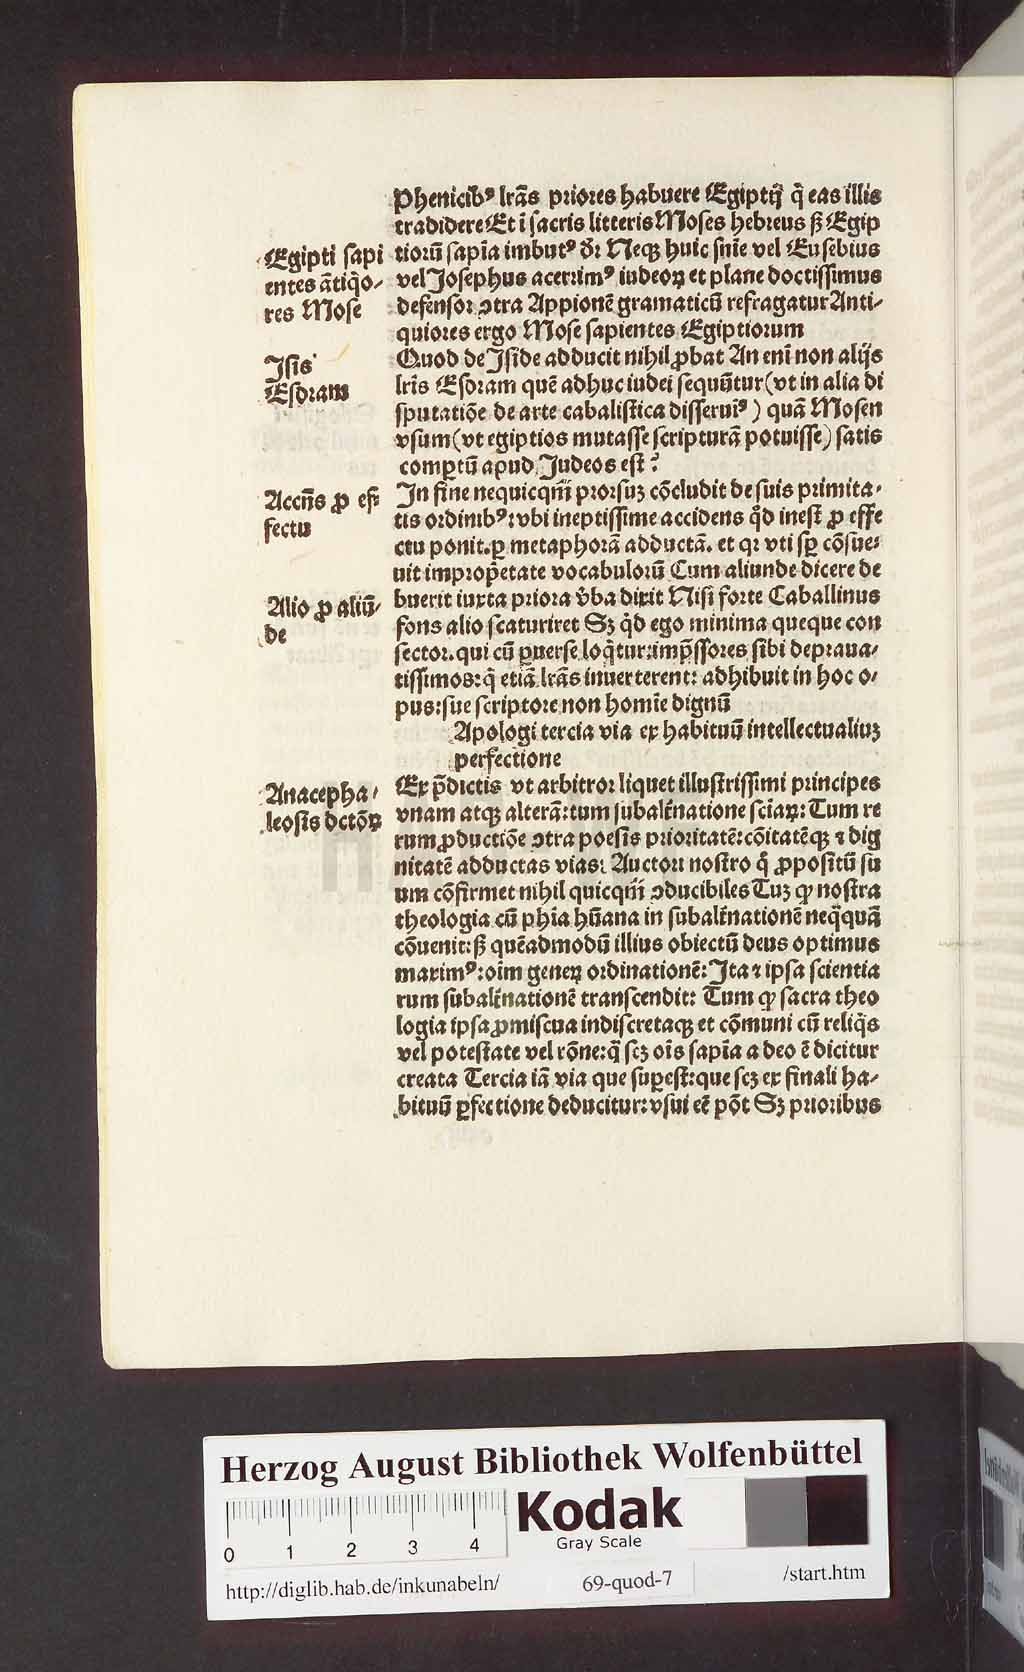 Phenicibꝰ lr̃as priores habuere Egiptij q̃ eas illis
tradidere Et ĩ sacris litteris Moses hebreus ß Egip
tiorũ sapĩa imbutꝰ Neqꝫ huic snĩe vel Eusebius
vel Josephus acerrimꝰ iudeoꝝ et plane doctissimus
defensor ↄtra Appionẽ gramaticũ refragatur Anti-
quiores ergo Mose sapientes Egiptiorum
Egipti sapi
entes ãtiq̃o-
res Mose
Quod de Jside adducit nihil ꝓbat An enĩ non alijs
lrĩs Esdram quẽ adhuc iudei sequũtur (vt in alia di
sputatiõe de arte cabalistica disseruiꝰ) quã Mosen
vsum (vt egiptios mutasse scripturã potuisse) satis
comꝑtũ apud Judeos est?
Jsis
Esdram
Jn fine nequicqm̃ prorsuꝫ cõcludit de suis primita-
tis ordinibꝰ: vbi ineptissime accidens q̃d inest ꝓ effe
ctu ponit. ꝑ metaphorã adductã. et qꝛ vti sꝑ cõsue-
uit improp̃etate vocabulorũ Cum aliunde dicere de
buerit iuxta priora v̓ba dixit Nisi forte Caballinus
fons alio scaturiret Sꝫ q̃d ego minima queque con
sector. qui cũ ꝑuerse loq̃tur: imp̃ssores sibi depraua-
tissimos: q̃ etiã lr̃as inuerterent: adhibuit in hoc o-
pus: sue scriptore non homĩe dignũ
Accñs ꝓ ef-
fectu
Alio ꝓ aliũ-
de
Apologi tercia via ex habituũ intellectualiuꝫ
perfectione
Ex p̃dictis vt arbitror liquet illustrissimi principes
vnam atqꝫ alterã: tum subalt̃natione sciaꝝ: Tum re
rum ꝓductiõe ↄtra poesis prioritatẽ: cõitatẽqꝫ ⁊ dig
nitatẽ adductas vias: Auctori nostro q̃ ꝓpositũ su
um cõfirmet nihil quicqm̃ ↄducibiles Tuꝫ ꝙ nostra
theologia cũ phĩa hũana in subalt̃nationẽ neq̃quã
cõuenit: ß quẽadmodũ illius obiectũ deus optimus
maximꝰ: oĩm geneꝝ ordinationẽ: Jta ⁊ ipsa scientia
rum subalt̃nationẽ transcendit: Tum ꝙ sacra theo
logia ipsa ꝓmiscua indiscretaqꝫ et cõmuni cũ reliq̃s
vel potestate vel rõne: q̃ scꝫ oĩs sapĩa a deo ẽ dicitur
creata Tercia iã via que suꝑest: que scꝫ ex finali ha-
bituũ ꝑfectione deducitur: vsui eẽ põt Sꝫ prioribus
Anacepha-
leosis dctõꝝ
HAB WF
Herzog August Bibliothek Wolfenbüttel
0 1 2 3 4
Kodak
Gray Scale
http://diglib.hab.de/inkunabeln/ 69-quod-7 /start.htm